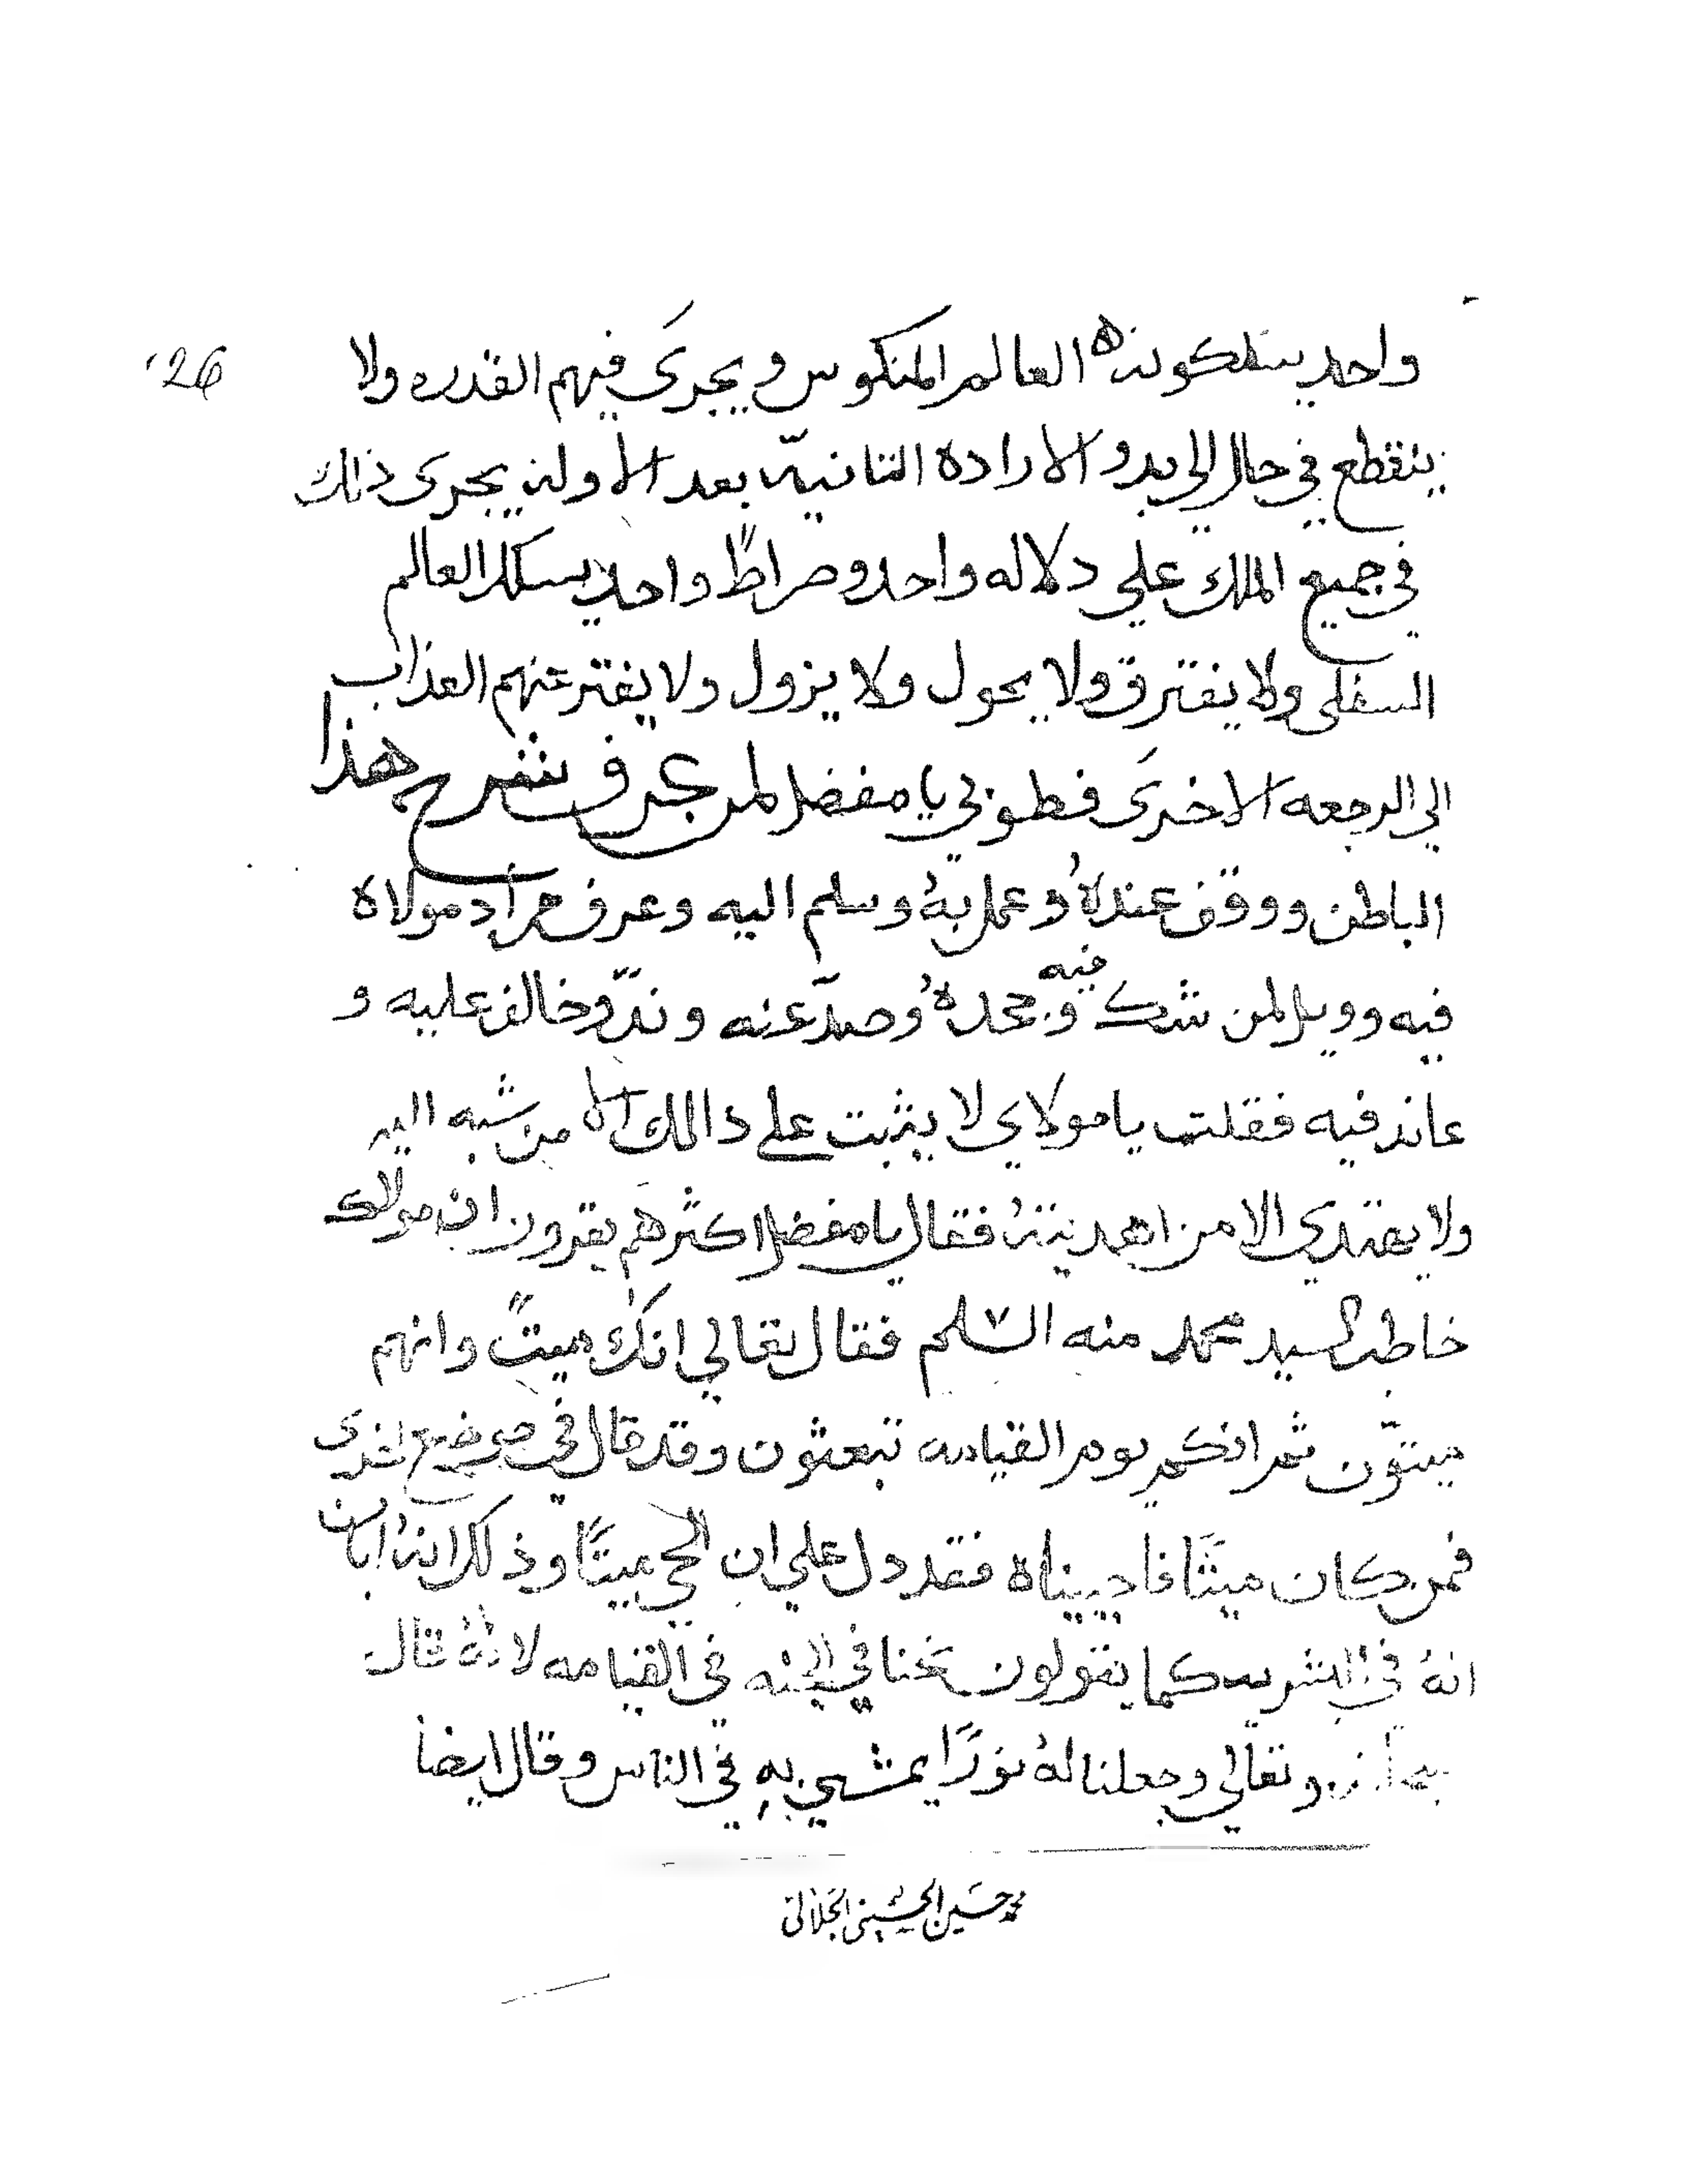 26
واحد يسلكونه العالم المنكوس ويجرى فيهم القدره ولا
ينقطع في حال الي بدو الاراده الثانيّه بعد الاوله يجرى ذلك
في جميع الملك علي دلاله واحد وصراطً واحد يسلك العالم
السفلى ولا يفترق ولا يحول ولا يزول ولا يفتر عنهم العذاب
الي الرجعه الاخرىَ فطوبي يا مفضل لمن عرف شرح هذا
الباطن ووقف عندهُ وعمل بهُ وسلم اليه وعرف مراد مولاه
فيه وويل لمن شك فيه وجحدهُ وصدّ عنه وندّ وخالف عليه و
عاند فيه فقلت يا مولاي لا يثبت علي دالك الا من شبه اليه
ولا يهتدي الا من اهديتهُ فقال يا مفضل اكثرهم يقرون ان مولاك
خاطب السيد محمد منه السلم فقال تعالي انكَ ميتً وانهم
ميتوّن ثمر انكم يوم القيامه تبعثون وقد قال في موضع اخرى
فمن كان ميتًا فاحييناه فقد دل علي ان الحي ميتًا وذلك انهُ ابان
انهُ في كما يقولون في الجنه في القيامه لانهُ قال
وتعالي وجعلنا لهُ نورًا يمشي بهِ في الناس وقال ايضا
محمد حسين الحسيني الجلالي